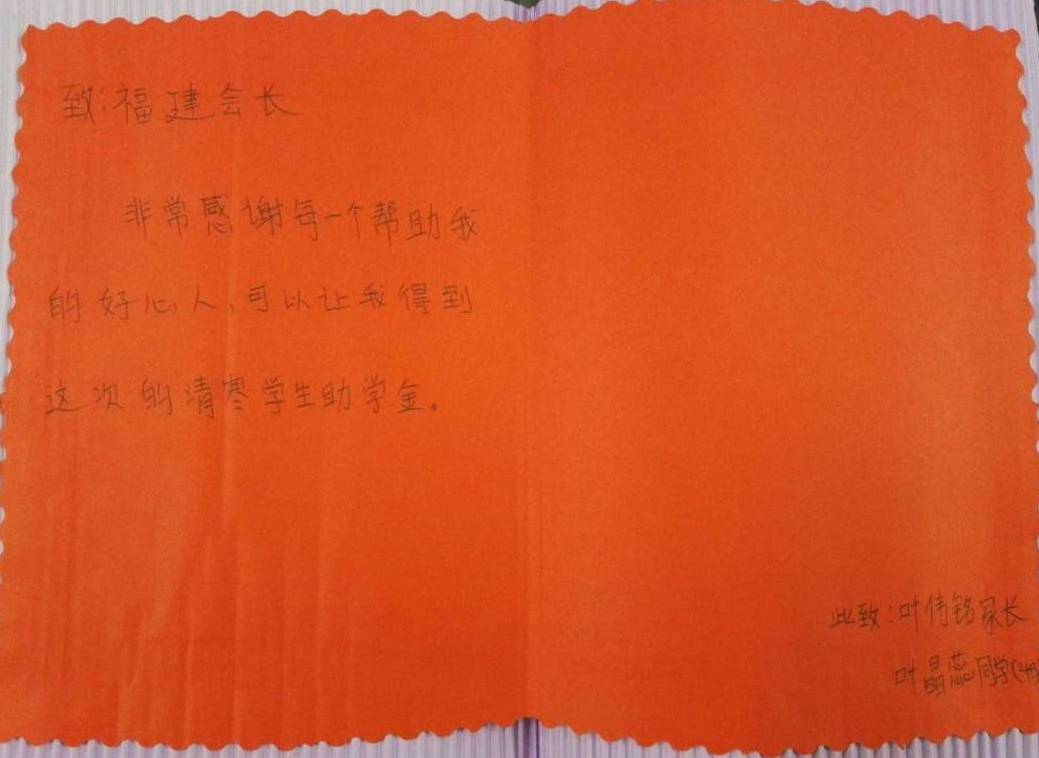 致:福建会长
非常感谢每一个帮助我
的好心人,可以让我得到
这次的清寒学生助学金。
此致:叶伟铭家长
叶晶蕊同学(